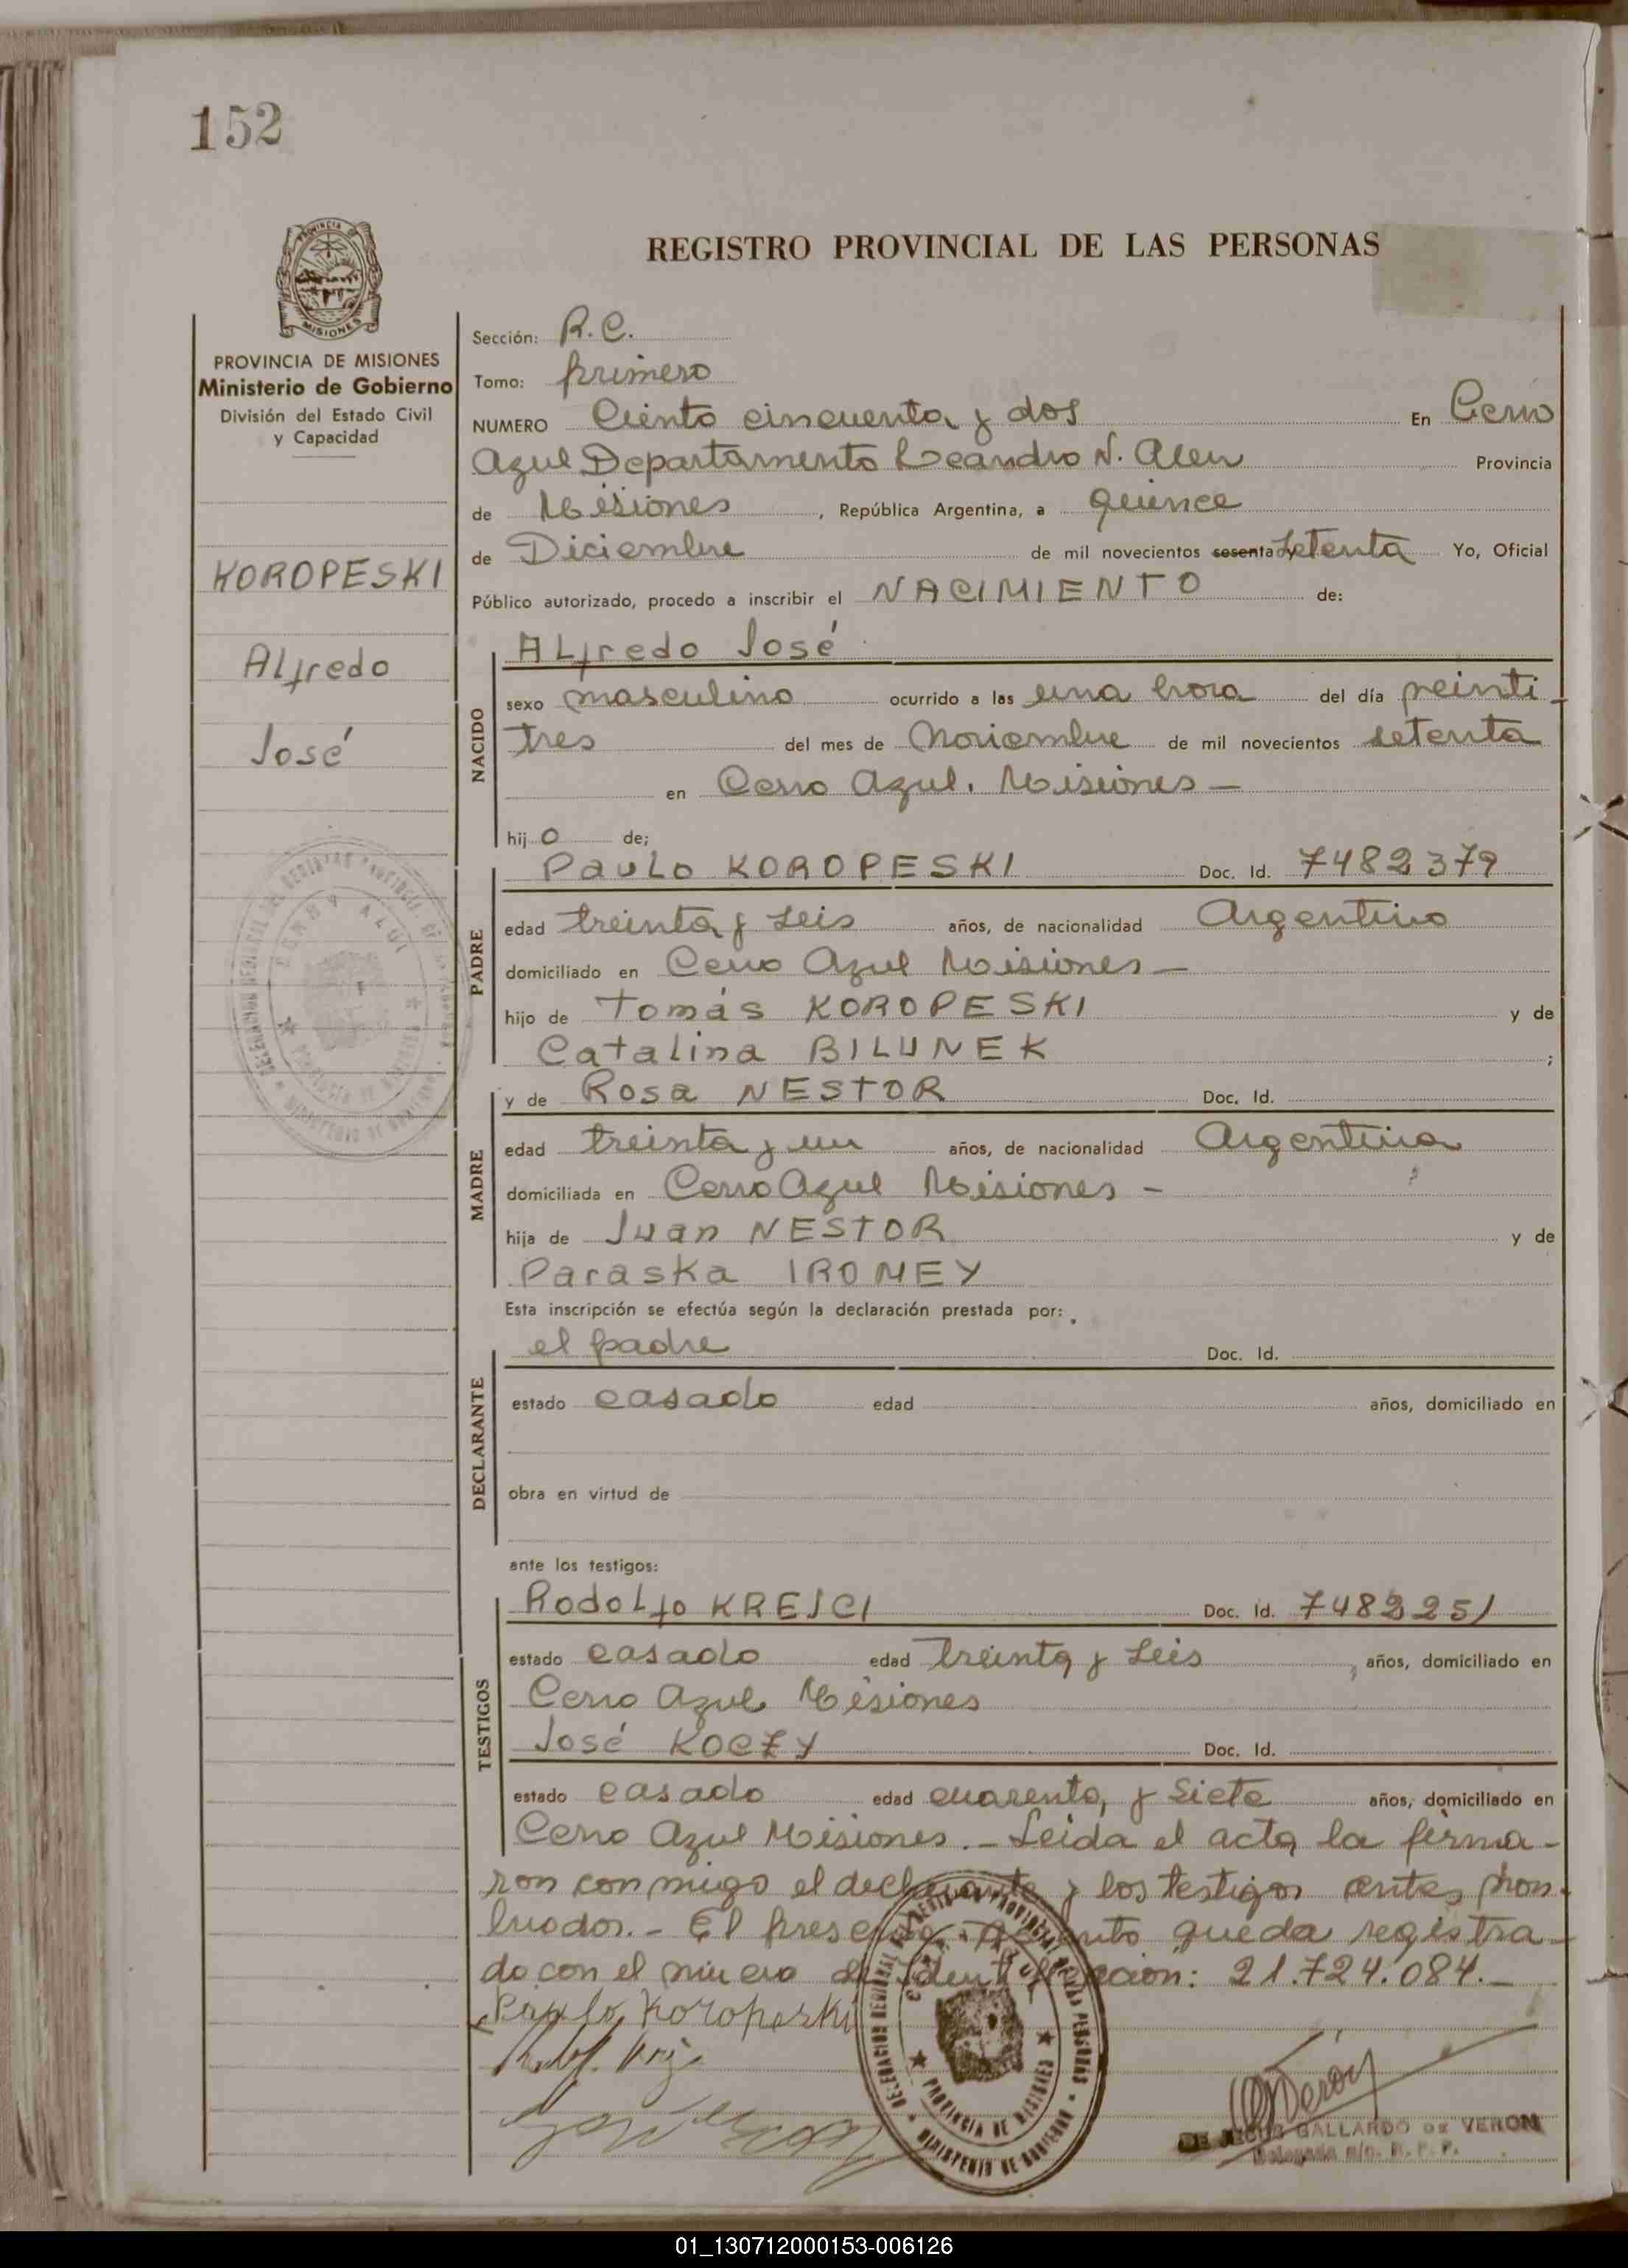 152
REGISTRO PROVINCIAL DE LAS PERSONAS
PROVINCIA DE MISIONES
Ministerio de Gobierno
División del Estado Civil
y Capacidad
KOROPESKI
Alfredo
José
Sección: R.C.
Tomo: primero
NUMERO Ciento cincuenta y dos En Cerro
Azul Departamento Leandro N. Alem Provincia
de Misiones, República Argentina, a quince
de Diciembre de mil novecientos sesenta y setenta Yo, Oficial
Público autorizado, procedo a inscribir el NACIMIENTO de:
NACIDO
ALfredo José
sexo masculino ocurrido a las una hora del día veinti-
tres del mes de Noviembre de mil novecientos setenta
en Cerro Azul. Misiones -
hijo de;
PADRE
PauLo KOROPESKI Doc. Id. 7482379
edad treinta y seis años, de nacionalidad Argentino
domiciliado en Cerro Azul Misiones -
hijo de Tomás KOROPESKI y de
Catalina BILUNEK ;
MADRE
y de Rosa NESTOR Doc. Id.
edad treinta y un años, de nacionalidad Argentina
domiciliada en Cerro Azul Misiones -
hija de Juan NESTOR y de
Paraska IROMEY
Esta inscripción se efectúa según la declaración prestada por:
DECLARANTE
el padre Doc. Id.
estado casado edad años, domiciliado en
obra en virtud de
ante los testigos:
TESTIGOS
RodoLfo KREJCI Doc. Id. 7482251
estado casado edad treinta y seis años, domiciliado en
Cerro Azul Misiones
José KOCZY Doc. Id.
estado casado edad cuarenta y siete años, domiciliado en
Cerro Azul Misiones.- Leida el acta la firma-
ron conmigo el declarante y los testigos antes nom-
brados.- El presente queda registra-
do con el número de Identificación: 21.724.084.-
Paulo Koropeski
DELEGACION REGIONAL DEL REGISTRO PROVINCIAL DE LAS PERSONAS
CERRO AZUL
PROVINCIA DE MISIONES
MINISTERIO DE GOBIERNO
DE JESUS GALLARDO DE VERON
Delegada a/c. R. P. P.
01_130712000153-006126